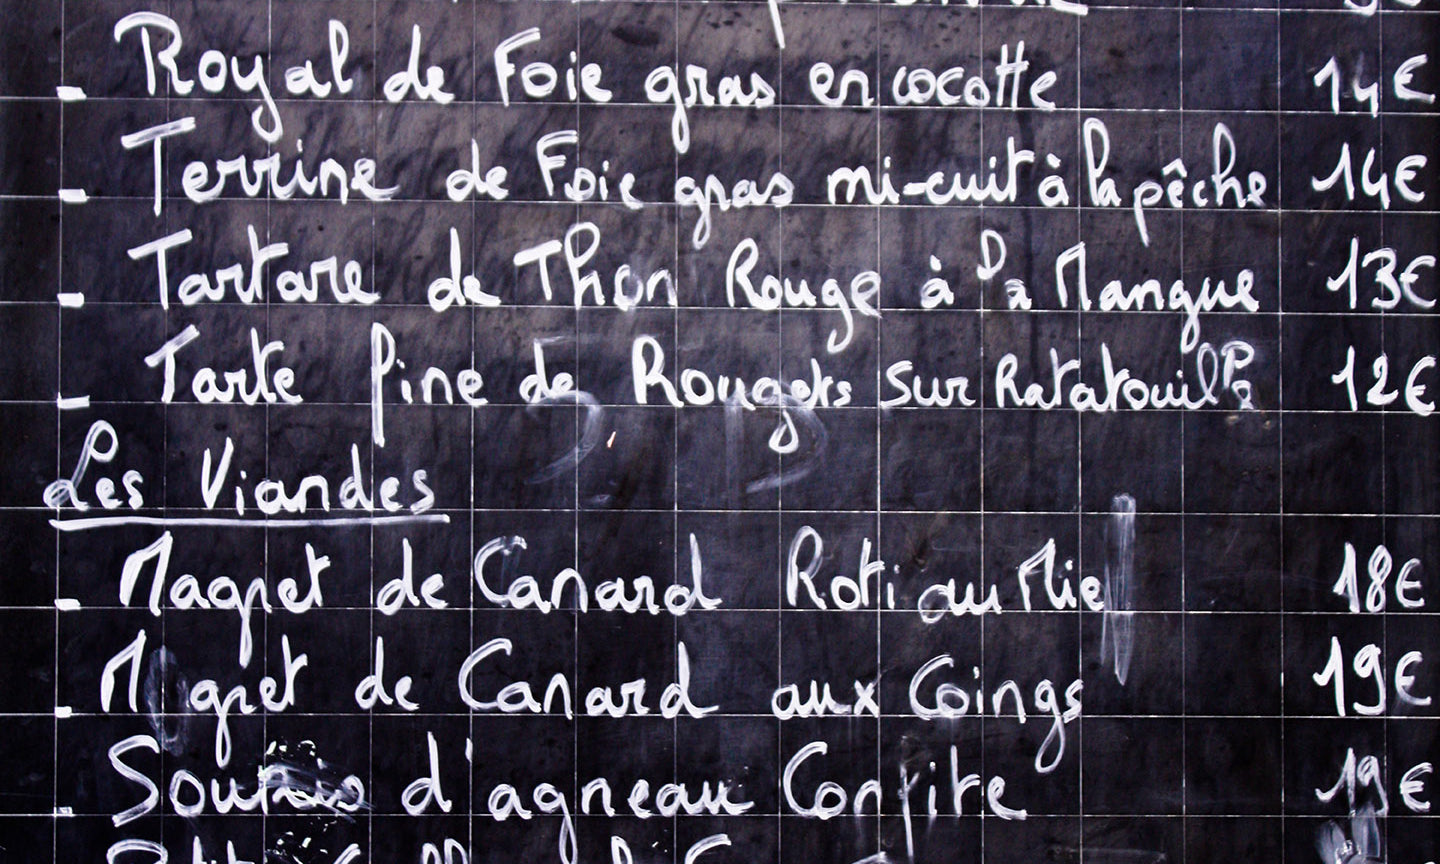 - Royal de Foie gras en cocotte 14€
- Terrine de Foie gras mi-cuit à la pêche 14€
- Tartare de Thon Rouge à la Mangue 13€
- Tarte fine de Rougets sur Ratatouille 12€
Les Viandes
- Magret de Canard Roti au Miel 18€
- Magret de Canard aux Coings 19€
- Souris d'agneau Confite 19€